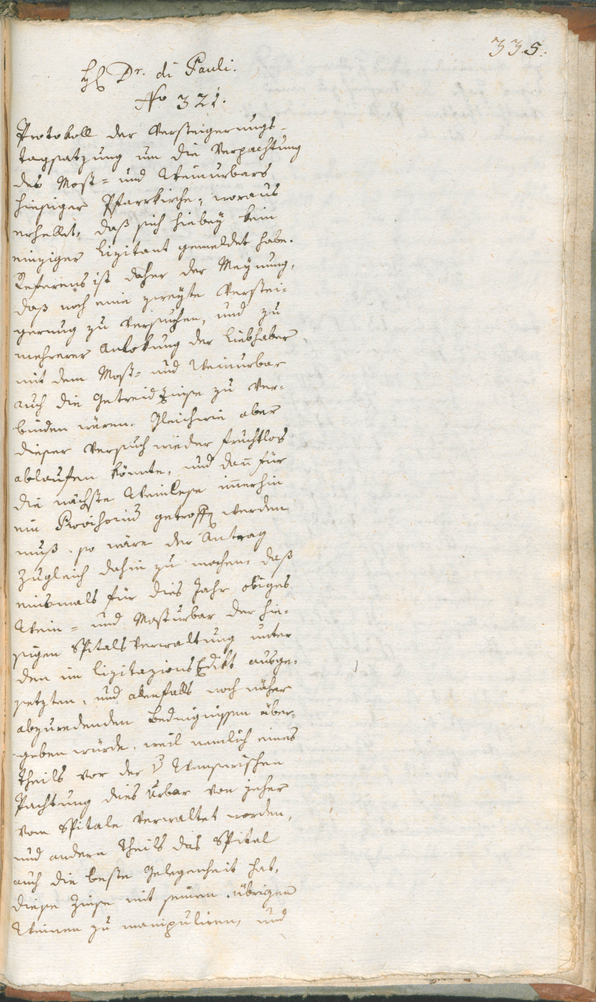 335.
H. Dr. di Pauli.
No 321.
Protokoll der Versteigerungs-
tagsatzung um die Verpachtung
des Most- und Weinurbars
hiesiger Pfarrkirche, woraus
erhellet, daß sich hiebey kein
einziger Lizitant gemeldet habe.
Referens ist daher der Meynung,
daß noch eine zweyte Verstei-
gerung zu versuchen, und zu
mehrerer Anlokung der Liebhaber
mit dem Most- und Weinurbar
auch die Getreidzinse zu ver-
binden wären. Gleichwie aber
dieser Versuch wieder fruchtlos
ablaufen könnte, und dan für
die nächste Weinlese immerhin
ein Provisorium getroffen werden
muß, so wäre der Antrag
zugleich dahin zu machen, daß
einsmals für dies Jahr obiges
Wein- und Mosturbar der hie-
sigen Spitalsverwaltung unter
den im Lizitazions Edikt ausge-
setzten, und allenfalls noch näher
abzuredenden Bedingnissen über-
geben würde, weil nemlich eines
Theils vor der
Pachtung dies Urbar von jeher
vom Spitale verwaltet worden,
und andern Theils das Spital
auch die beste Gelegenheit hat,
diese Zinse mit seinen übrigen
Weinen zu manipuliren, und